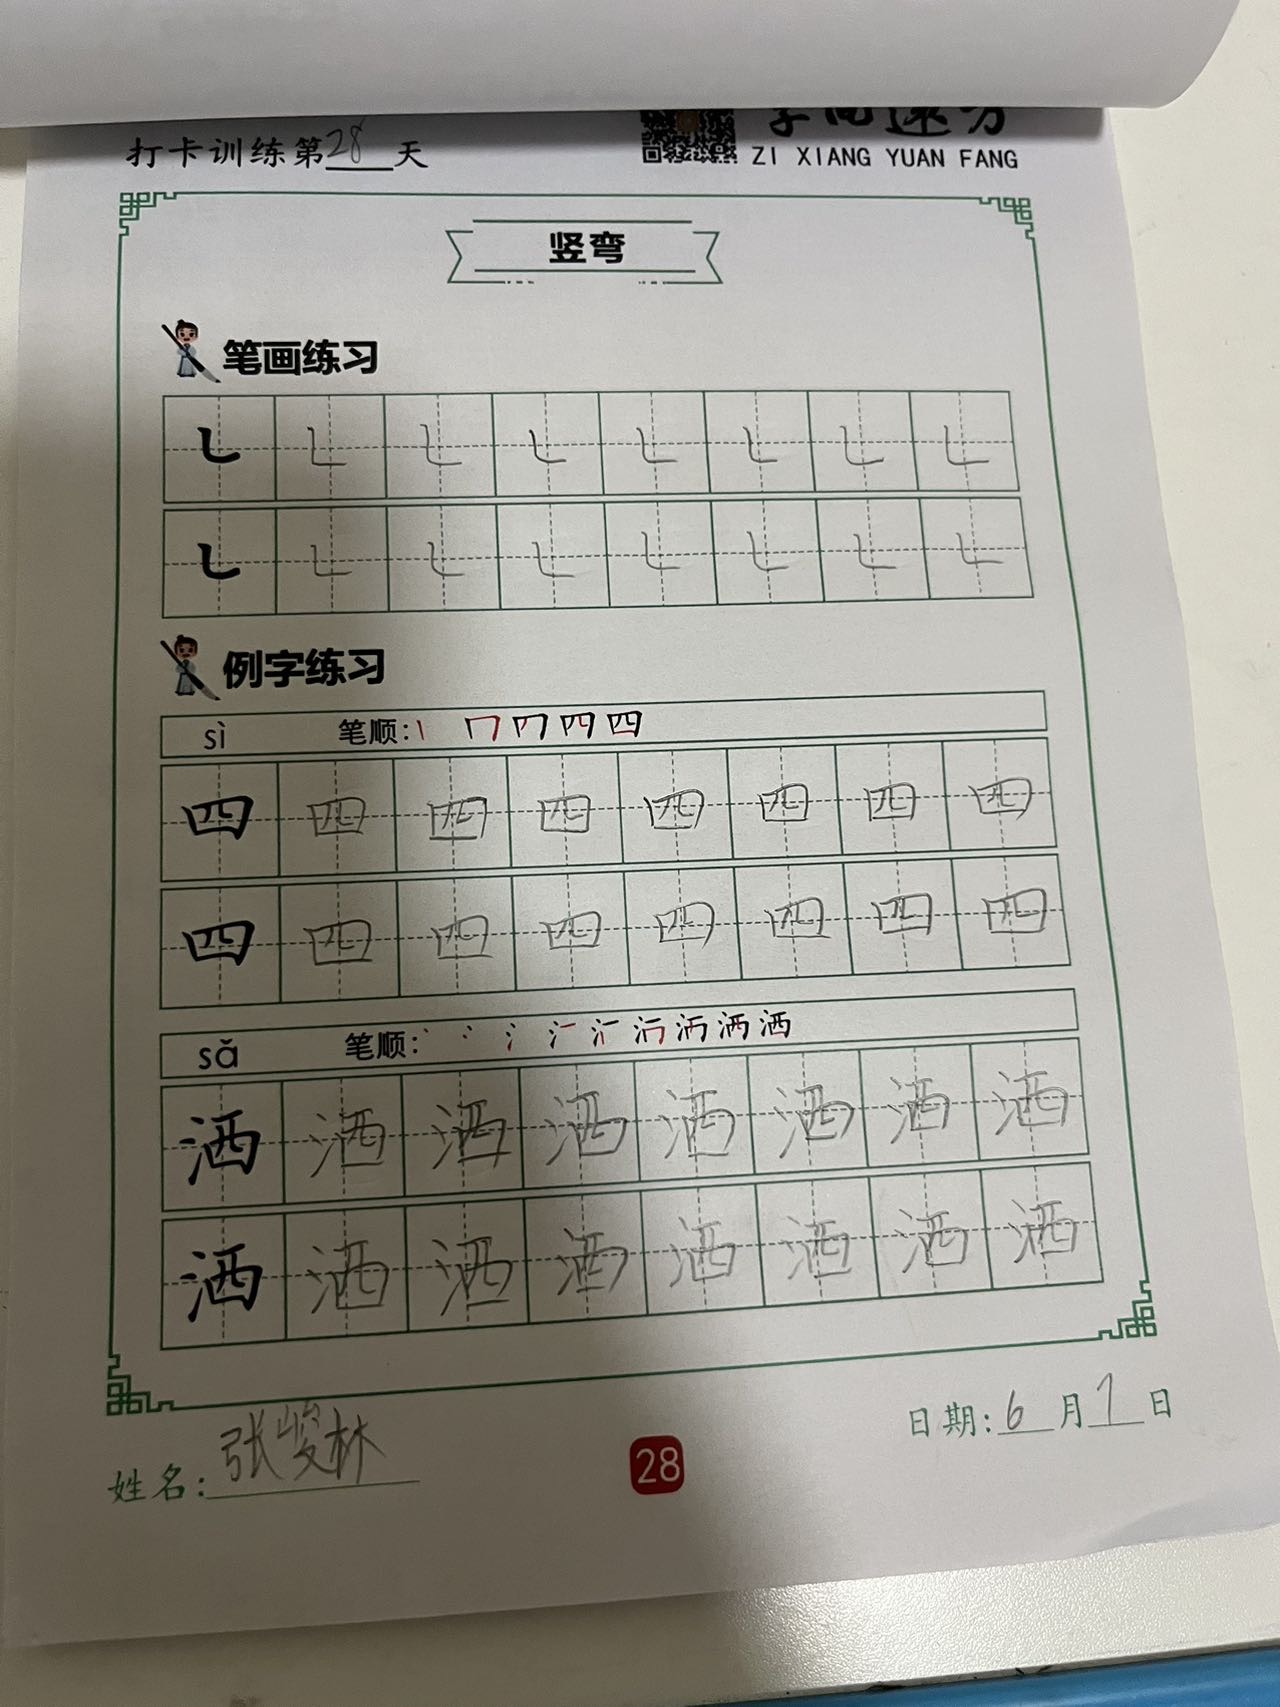 打卡训练第28天
ZI XIANG YUAN FANG
竖弯
笔画练习
㇄ ㇄ ㇄ ㇄ ㇄ ㇄ ㇄ ㇄
㇄ ㇄ ㇄ ㇄ ㇄ ㇄ ㇄ ㇄
例字练习
sì 笔顺: 四
四 四 四 四 四 四 四 四
四 四 四 四 四 四 四 四
sǎ 笔顺: 洒
洒 洒 洒 洒 洒 洒 洒 洒
洒 洒 洒 洒 洒 洒 洒 洒
姓名: 张峻林
28
日期: 6月1日